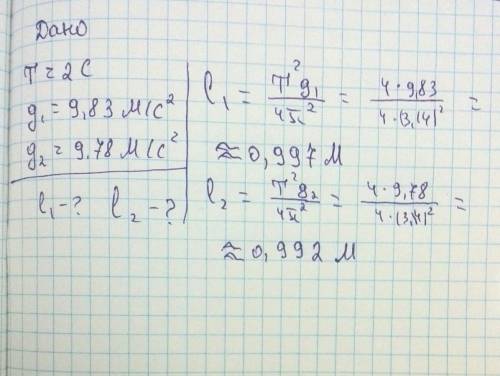 Дано
T = 2 С
g₁ = 9,83 м/с²
g₂ = 9.78 м/с²
l₁ - ? l₂ - ?
l₁ = T²g₁/4π² = 4 · 9,83/4 · (3,14)² =
≈ 0,997 м
l₂ = T²g₂/4π² = 4 · 9,78/4 · (3,14)² =
≈ 0,992 м